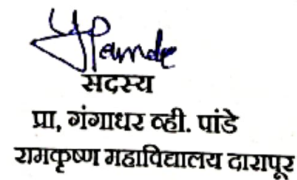 सदस्य
प्रा, गंगाधर व्ही. पांडे
रामकृष्ण महाविद्यालय दारापूर